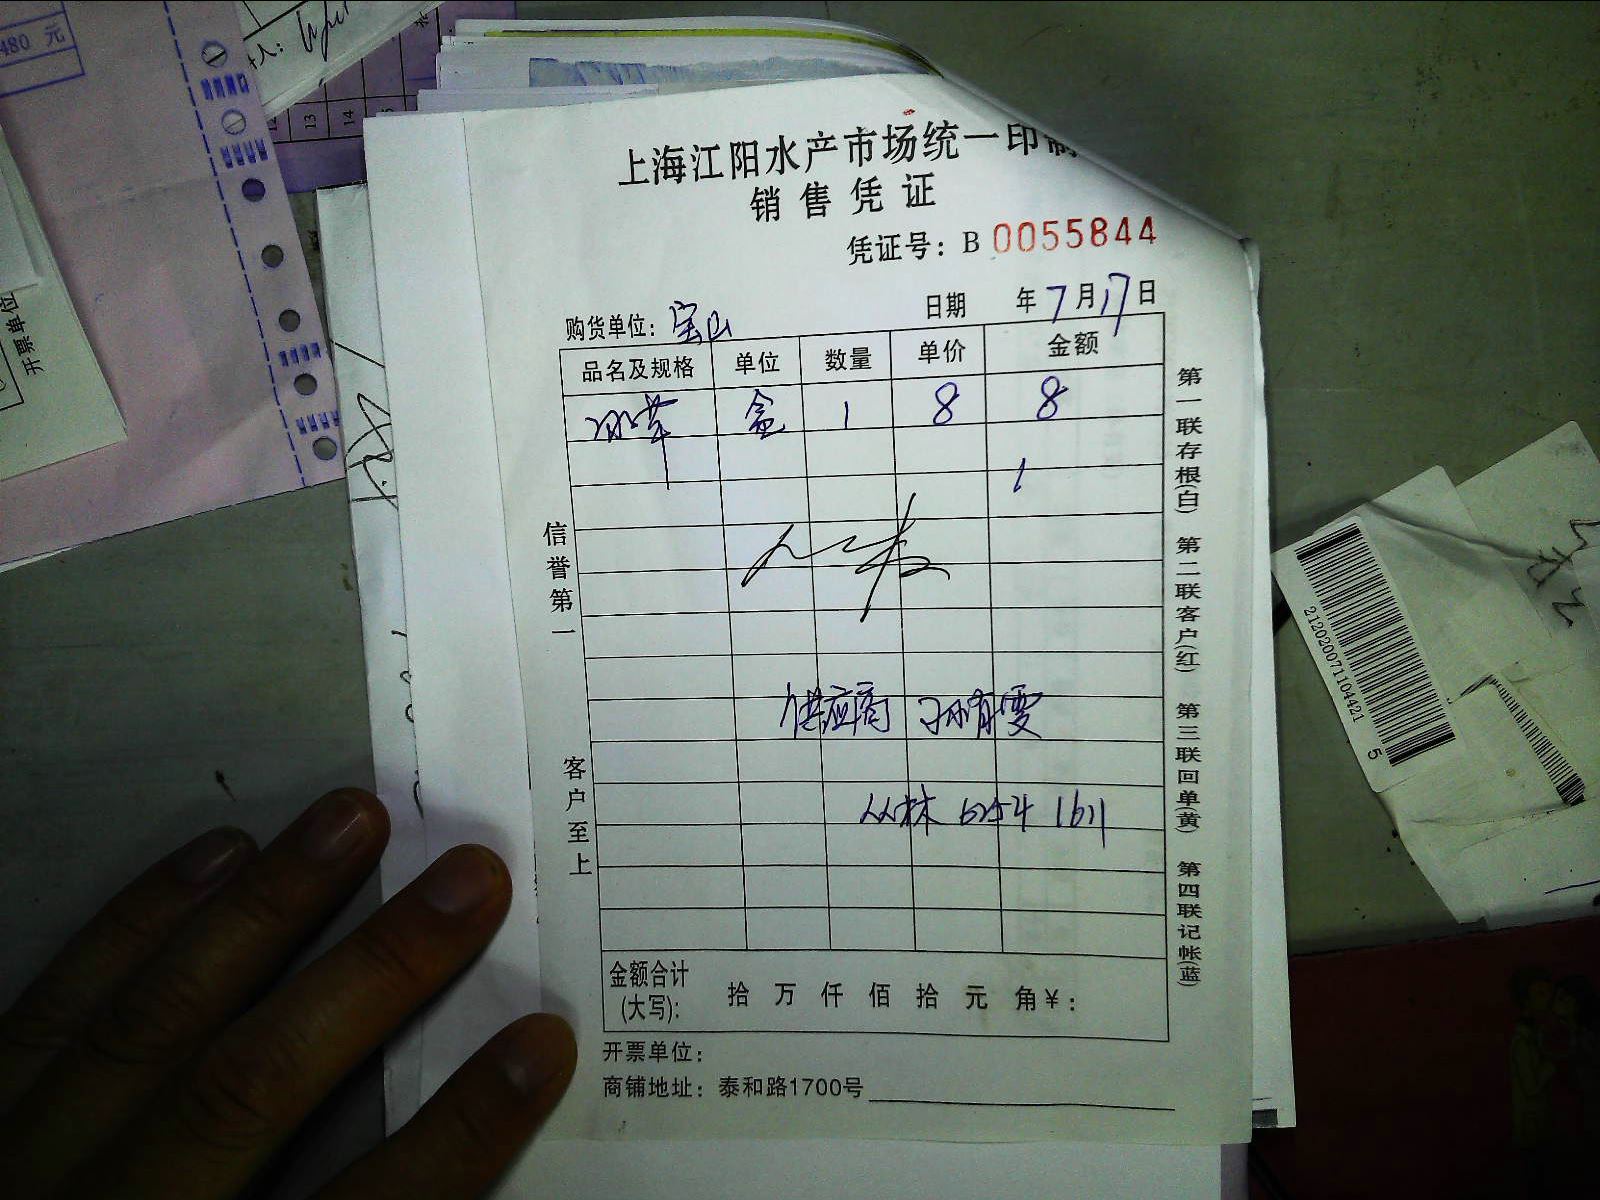 480 元
人：
12
13
14
15
开票单位
上海江阳水产市场统一印制
销售凭证
凭证号：B 0055844
购货单位：宝山
日期 年 7 月 17 日
品名及规格 单位 数量 单价 金额
冰草 盒 1 8 8
供应商 孙有雯
丛林
信誉第一
客户至上
第一联存根(白) 第二联客户(红) 第三联回单(黄) 第四联记帐(蓝)
金额合计(大写)： 拾 万 仟 佰 拾 元 角 ¥：
开票单位：
商铺地址：泰和路1700号
212020071104421
5